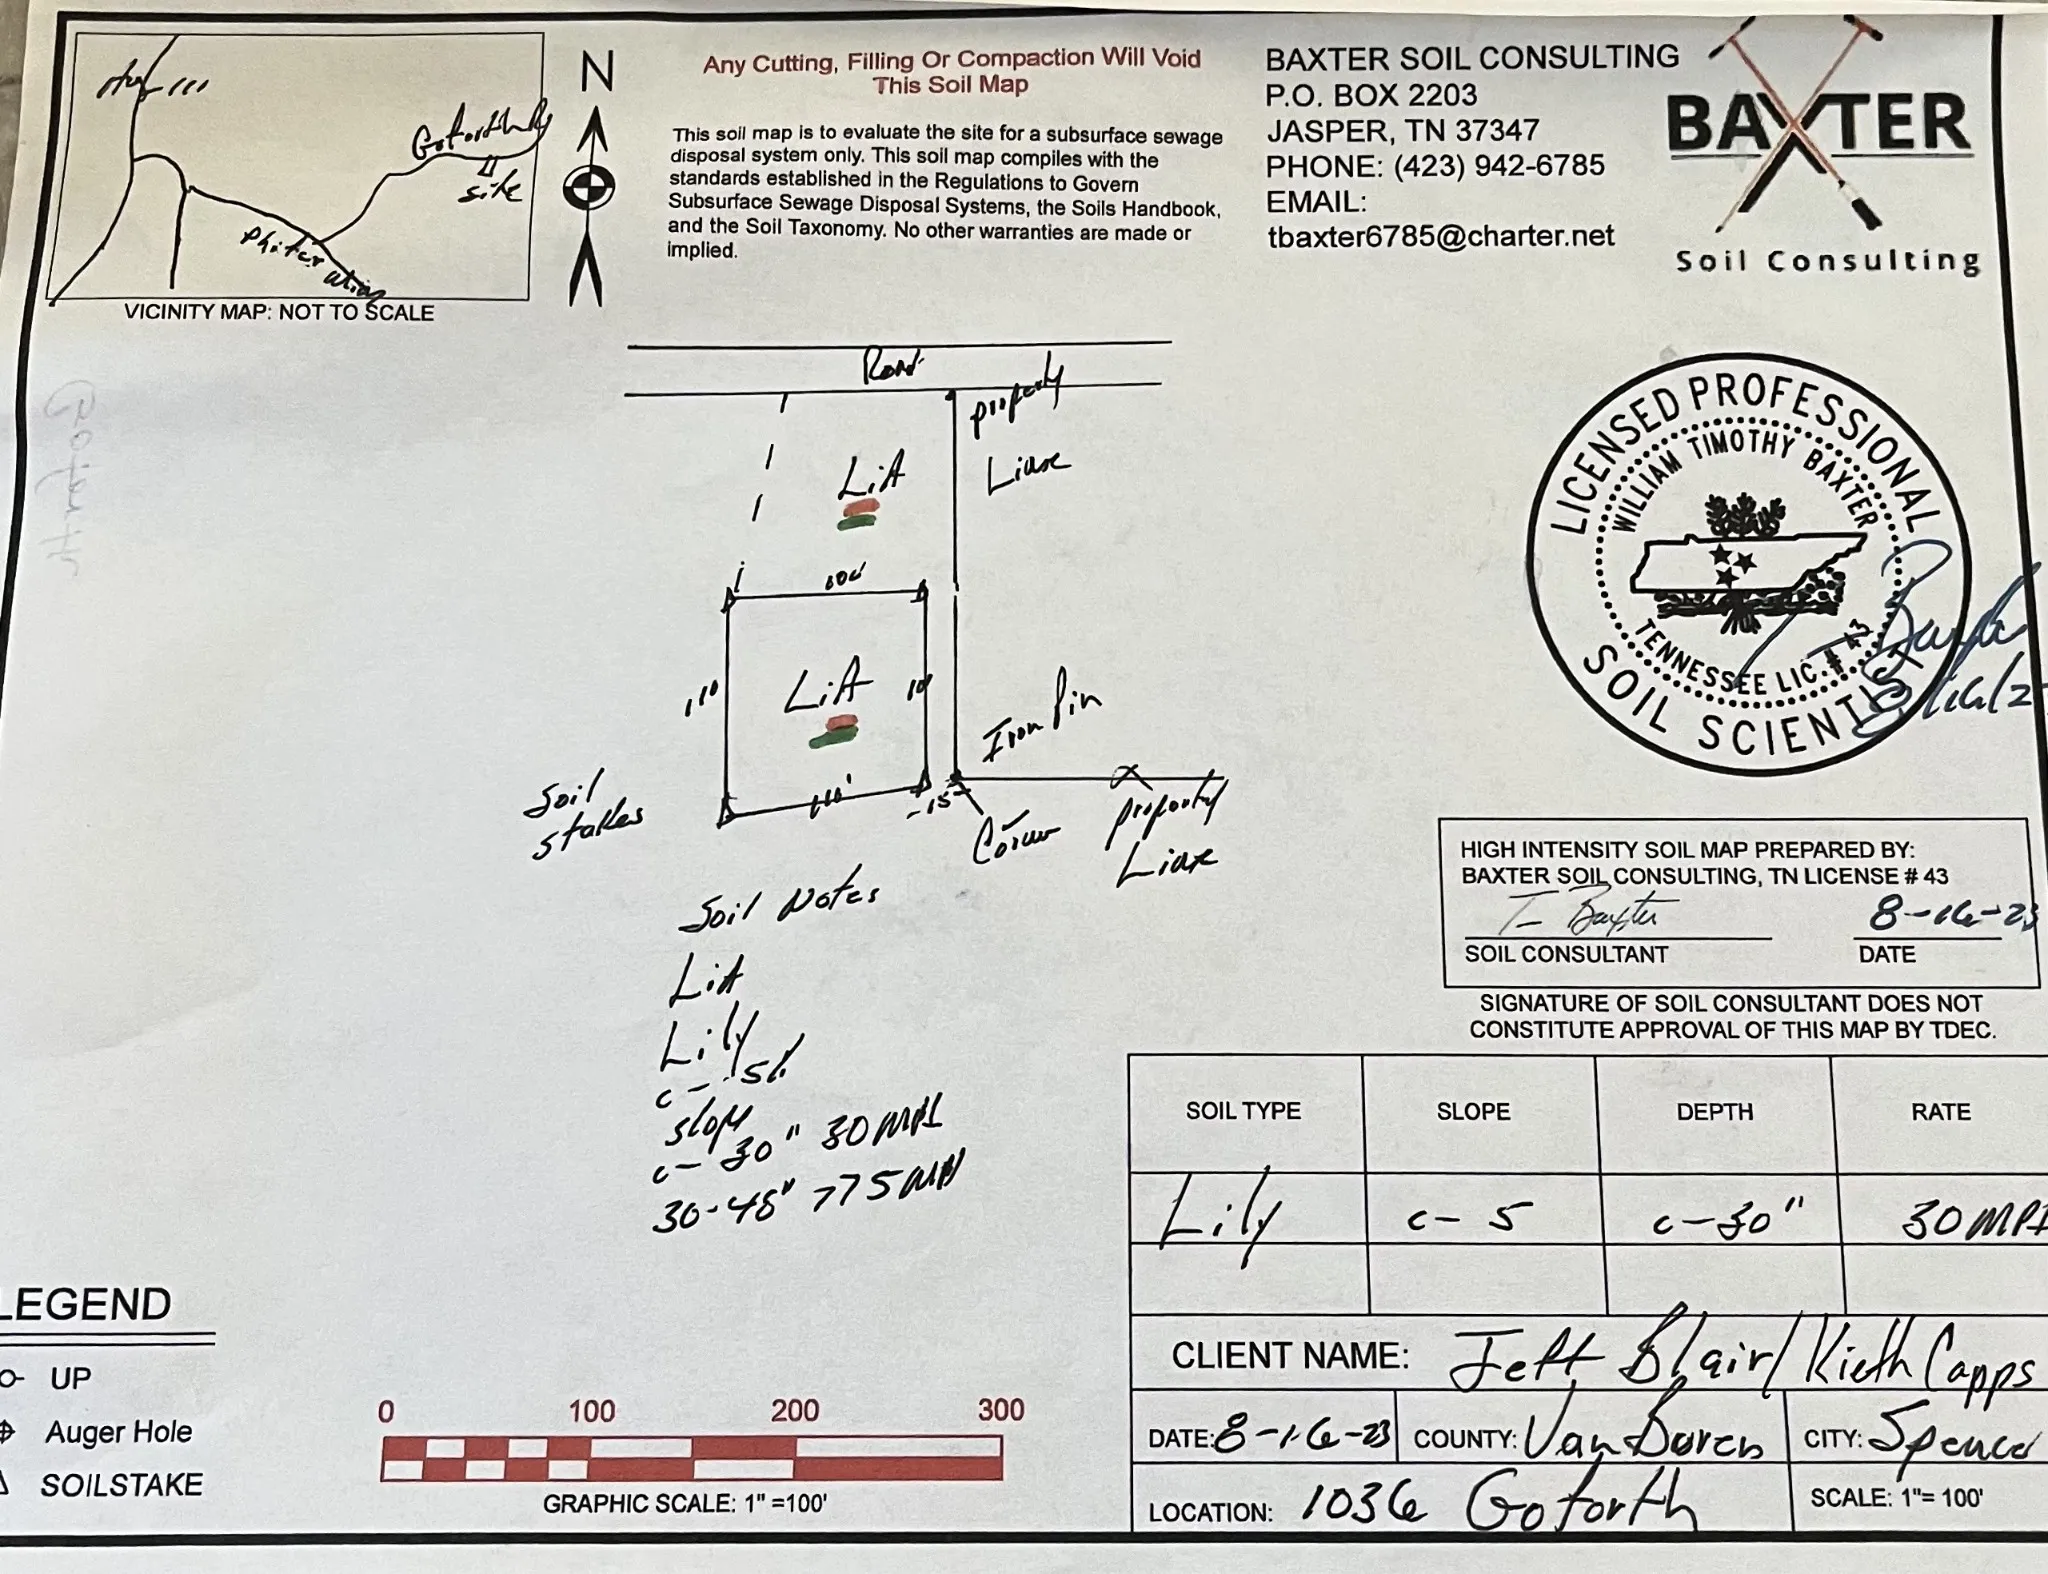 Hwy 111
Goforth Rd
site
VICINITY MAP: NOT TO SCALE
N
Any Cutting, Filling Or Compaction Will Void
This Soil Map
This soil map is to evaluate the site for a subsurface sewage
disposal system only. This soil map compiles with the
standards established in the Regulations to Govern
Subsurface Sewage Disposal Systems, the Soils Handbook,
and the Soil Taxonomy. No other warranties are made or
implied.
BAXTER SOIL CONSULTING
P.O. BOX 2203
JASPER, TN 37347
PHONE: (423) 942-6785
EMAIL:
tbaxter6785@charter.net
BAXTER
Soil Consulting
Road
property
Line
LiA
100'
LiA
Iron Pin
15
Corner
property
Line
Soil
stakes
LICENSED PROFESSIONAL
WILLIAM TIMOTHY BAXTER
TENNESSEE LIC. # 43
SOIL SCIENTIST
HIGH INTENSITY SOIL MAP PREPARED BY:
BAXTER SOIL CONSULTING, TN LICENSE # 43
T Baxter 8-16-23
SOIL CONSULTANT DATE
SIGNATURE OF SOIL CONSULTANT DOES NOT
CONSTITUTE APPROVAL OF THIS MAP BY TDEC.
Soil Notes
LiA
Lily
0-5%
slope
0-30" 30 MPI
30-48" >75 MPI
SOIL TYPE SLOPE DEPTH RATE
Lily 0-5 0-30" 30 MPI
CLIENT NAME: Jeff Blair/Kieth Capps
DATE: 8-16-23 COUNTY: Van Buren CITY: Spencer
LOCATION: 1036 Goforth SCALE: 1"= 100'
LEGEND
UP
Auger Hole
SOILSTAKE
0 100 200 300
GRAPHIC SCALE: 1" =100'